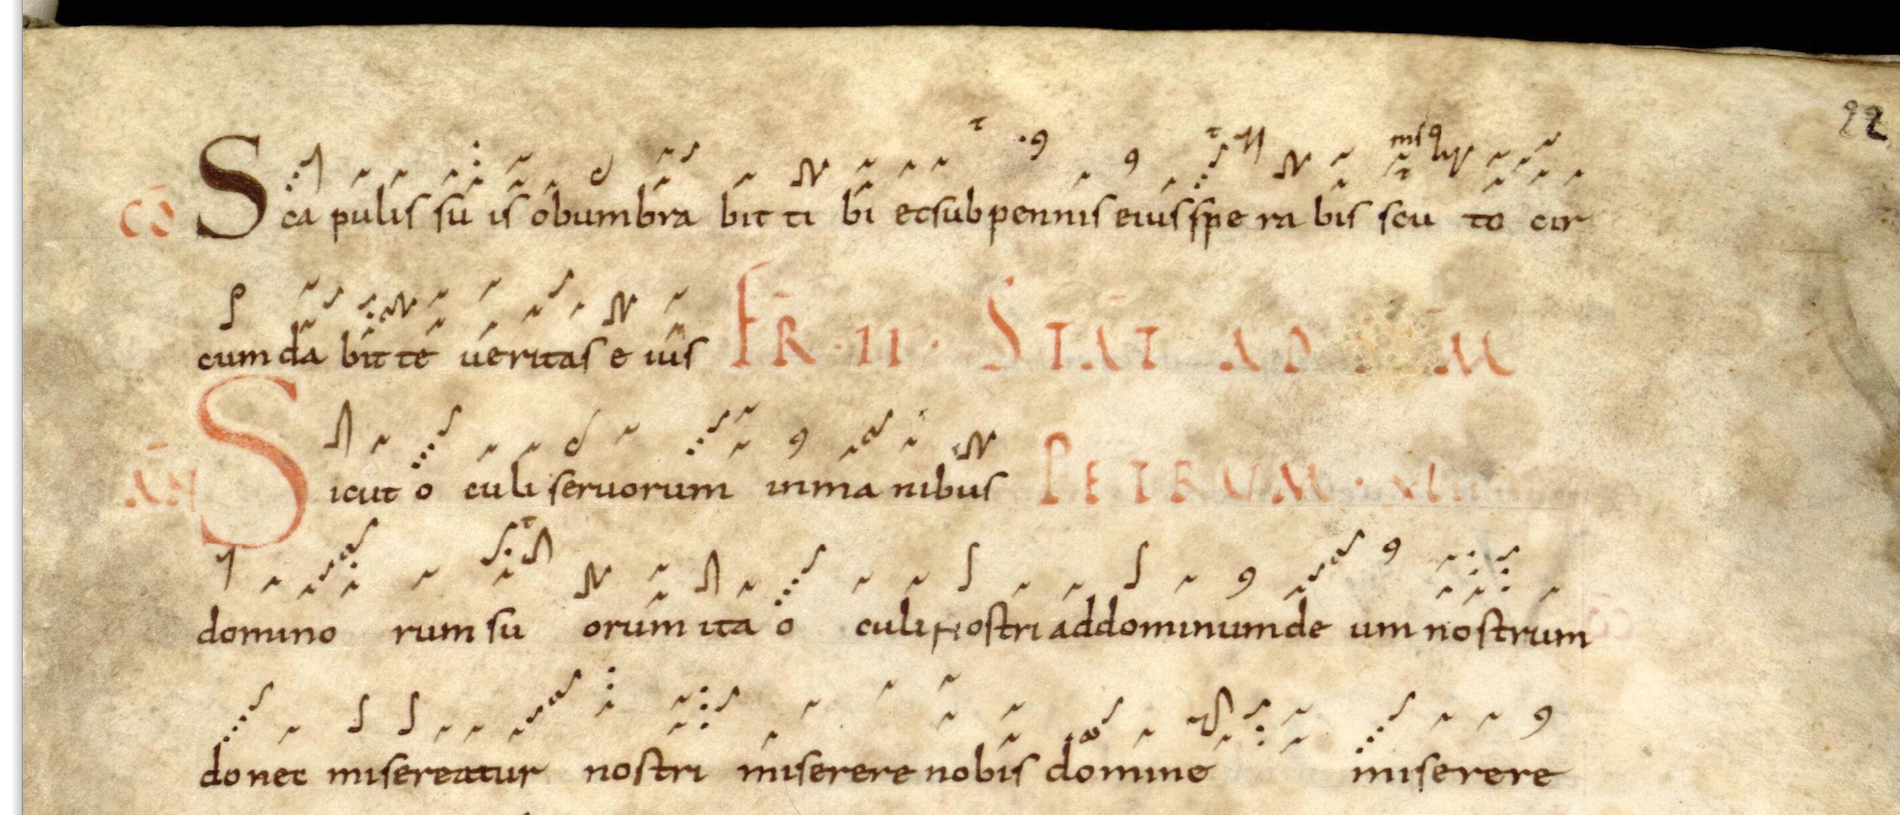 22
CŌ Sca pulis su is obumbra bit ti bi et sub pennis eius spe ra bis scu to cir
cum da bit te ueritas e ius FR · II · STAT AD M
AN Sicut o culi seruorum in ma nibus PETRUM ·
domino rum su orum ita o culi nostri ad dominum de um nostrum
donec misereatur nostri miserere nobis domine miserere